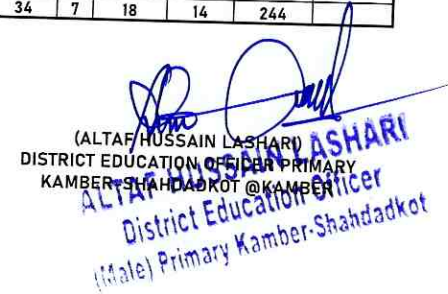 34 7 18 14 244
(ALTAF HUSSAIN LASHARI)
DISTRICT EDUCATION OFFICER PRIMARY
KAMBER-SHAHDADKOT @KAMBER
ALTAF HUSSAIN LASHARI
District Education Officer
(Male) Primary Kamber-Shahdadkot